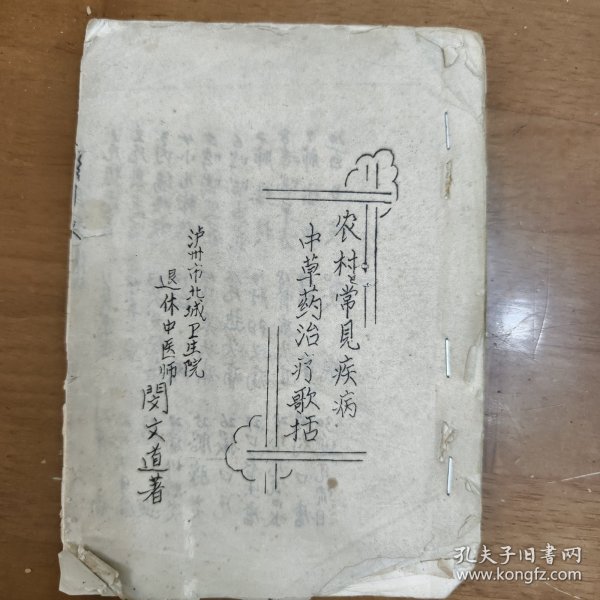 农村常见疾病
中草药治疗歌括
泸州市北城卫生院
退休中医师
闵文道著
孔夫子旧书网
www.kongfz.com